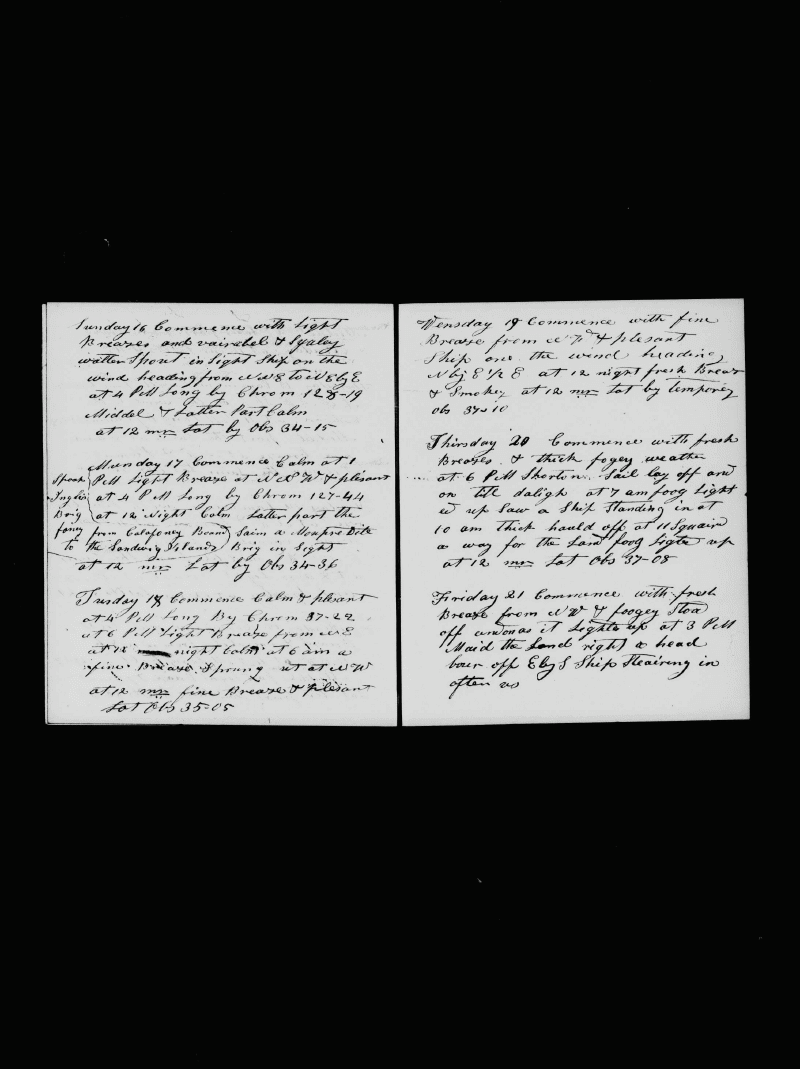 Sunday 16 Commence with Light
Breazes and vairabel & Squley
watter Spout in Sight Ship on the
wind heading from NNE to NEbyE
at 4 PM Long by Chrom 128-19
Middel & Latter Part Calm
at 12 mr Lat by Obs 34-15
Munday 17 Commence Calm at 1
PM Light Breaze at NNW & plesant
at 4 PM Long by Chrom 127-44
at 12 Night Calm Latter part the
Spook
Inglis
Brig
from Calafoney Bound Saim a Monpre Date
to the Sandwig Islands Brig in Sight
at 12 mr Lat by Obs 34-36
Tusday 18 Commence Calm & plesant
at 4 PM Long By Chrom 37-22
at 6 PM Light Breaze from NE
at 12 night Calm at 6 am a
fine Breaze Sprung ut at NW
at 12 mr fine Breaze & plesant
Lat Obs 35-05
Wensday 19 Commence with fine
Breaze from NW & plesant
Ship one the wind heading
NbyE 1/2 E at 12 night fresh Breaz
& Smokey at 12 mr Lat by temporey
obs 37-10
Thirsday 20 Commence with fresh
Breazes & thick fogey weather
at 6 PM Shorton Sail lay off and
on till daligh at 7 am foog Light
up Saw a Ship Standing in at
10 am thick hauld off at 11 Squaird
a way for the Land foog Ligte up
at 12 mr Lat Obs 37-08
Firiday 21 Commence with fresh
Breaze from NW & foogey Stod
off and on as it Lighte up at 3 PM
Maid the Land right a head
boar off EbyS Ship Steairing in
often us